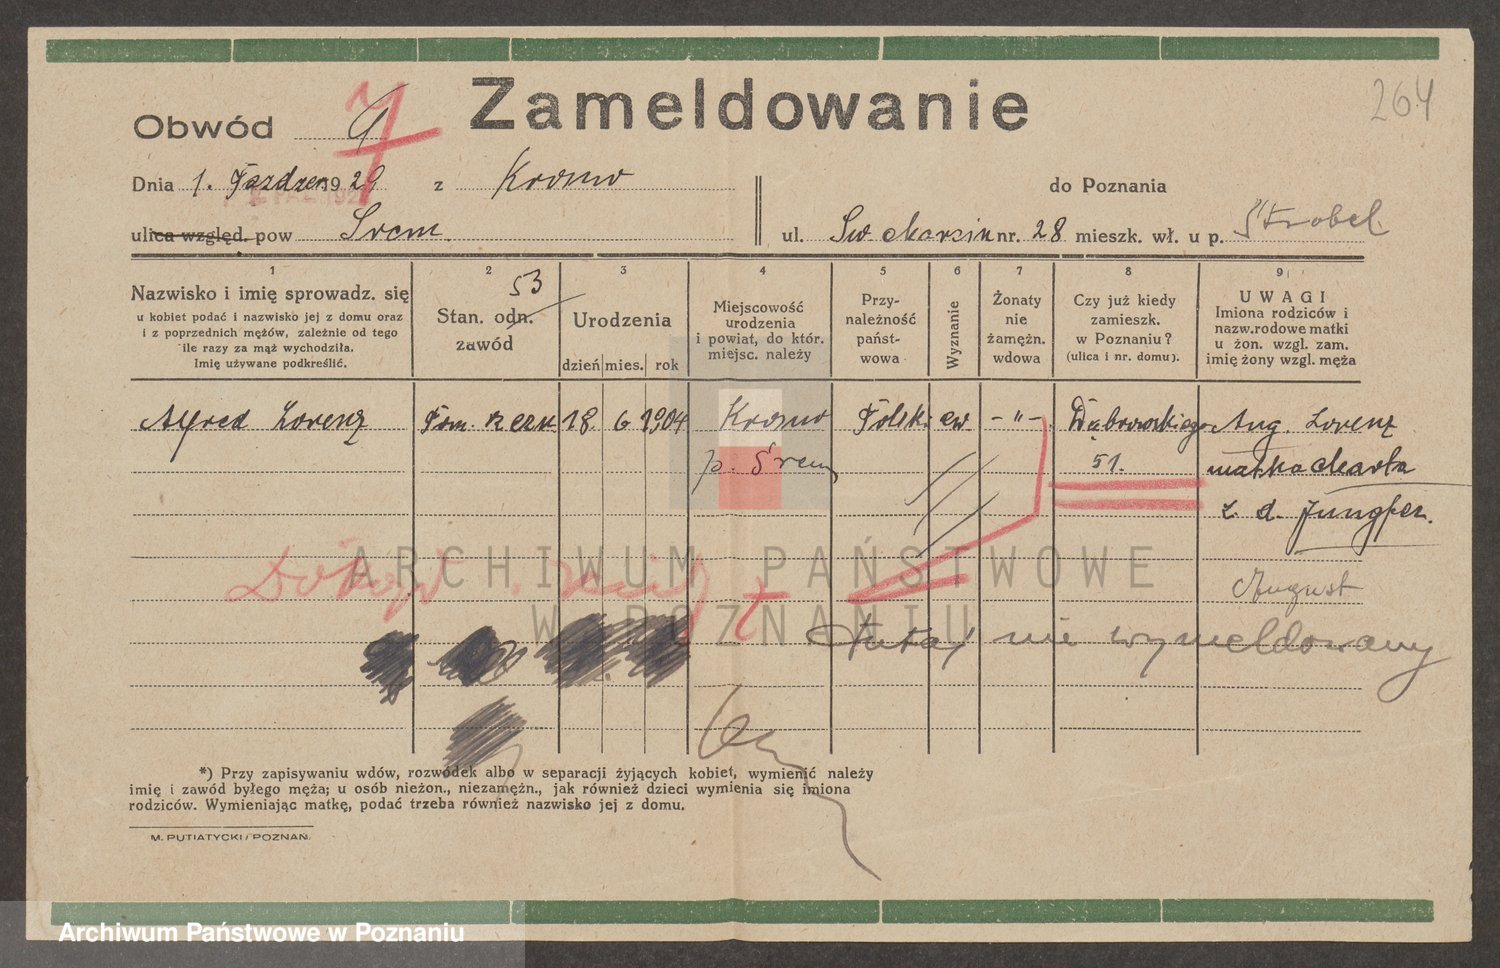 264
Zameldowanie
Obwód 9 7
Dnia 1. Paździer. 1929 z Kromo do Poznania
ulica względ. pow Srem. ul. Sw Marcin nr. 28 mieszk. wł. u p. Strobel
1 2 3 4 5 6 7 8 9
53
Nazwisko i imię sprowadz. się
u kobiet podać i nazwisko jej z domu oraz
i z poprzednich mężów, zależnie od tego
ile razy za mąż wychodziła.
Imię używane podkreślić.
Stan. odn.
zawód
Urodzenia
dzień mies. rok
Miejscowość
urodzenia
i powiat, do któr.
miejsc. należy
Przy-
należność
państ-
wowa
Wyznanie
Żonaty
nie
zamężn.
wdowa
Czy już kiedy
zamieszk.
w Poznaniu?
(ulica i nr. domu).
UWAGI
Imiona rodziców i
nazw.rodowe matki
u żon. wzgl. zam.
imię żony wzgl. męża
Alfred Lorenz Pom. rzeźn. 18 6 1904 Kromo Polsk. ew - " - Dąbrowskiego Aug. Lorenz
p. Srem 51. matka Marta
z. d. Jungfer.
ARCHIWUM PAŃSTWOWE
August
W POZNANIU
tutaj nie wymeldowany
*) Przy zapisywaniu wdów, rozwódek albo w separacji żyjących kobiet, wymienić należy
imię i zawód byłego męża; u osób nieżon., niezamężn., jak również dzieci wymienia się imiona
rodziców. Wymieniając matkę, podać trzeba również nazwisko jej z domu.
M. PUTIATYCKI / POZNAŃ
Archiwum Państwowe w Poznaniu